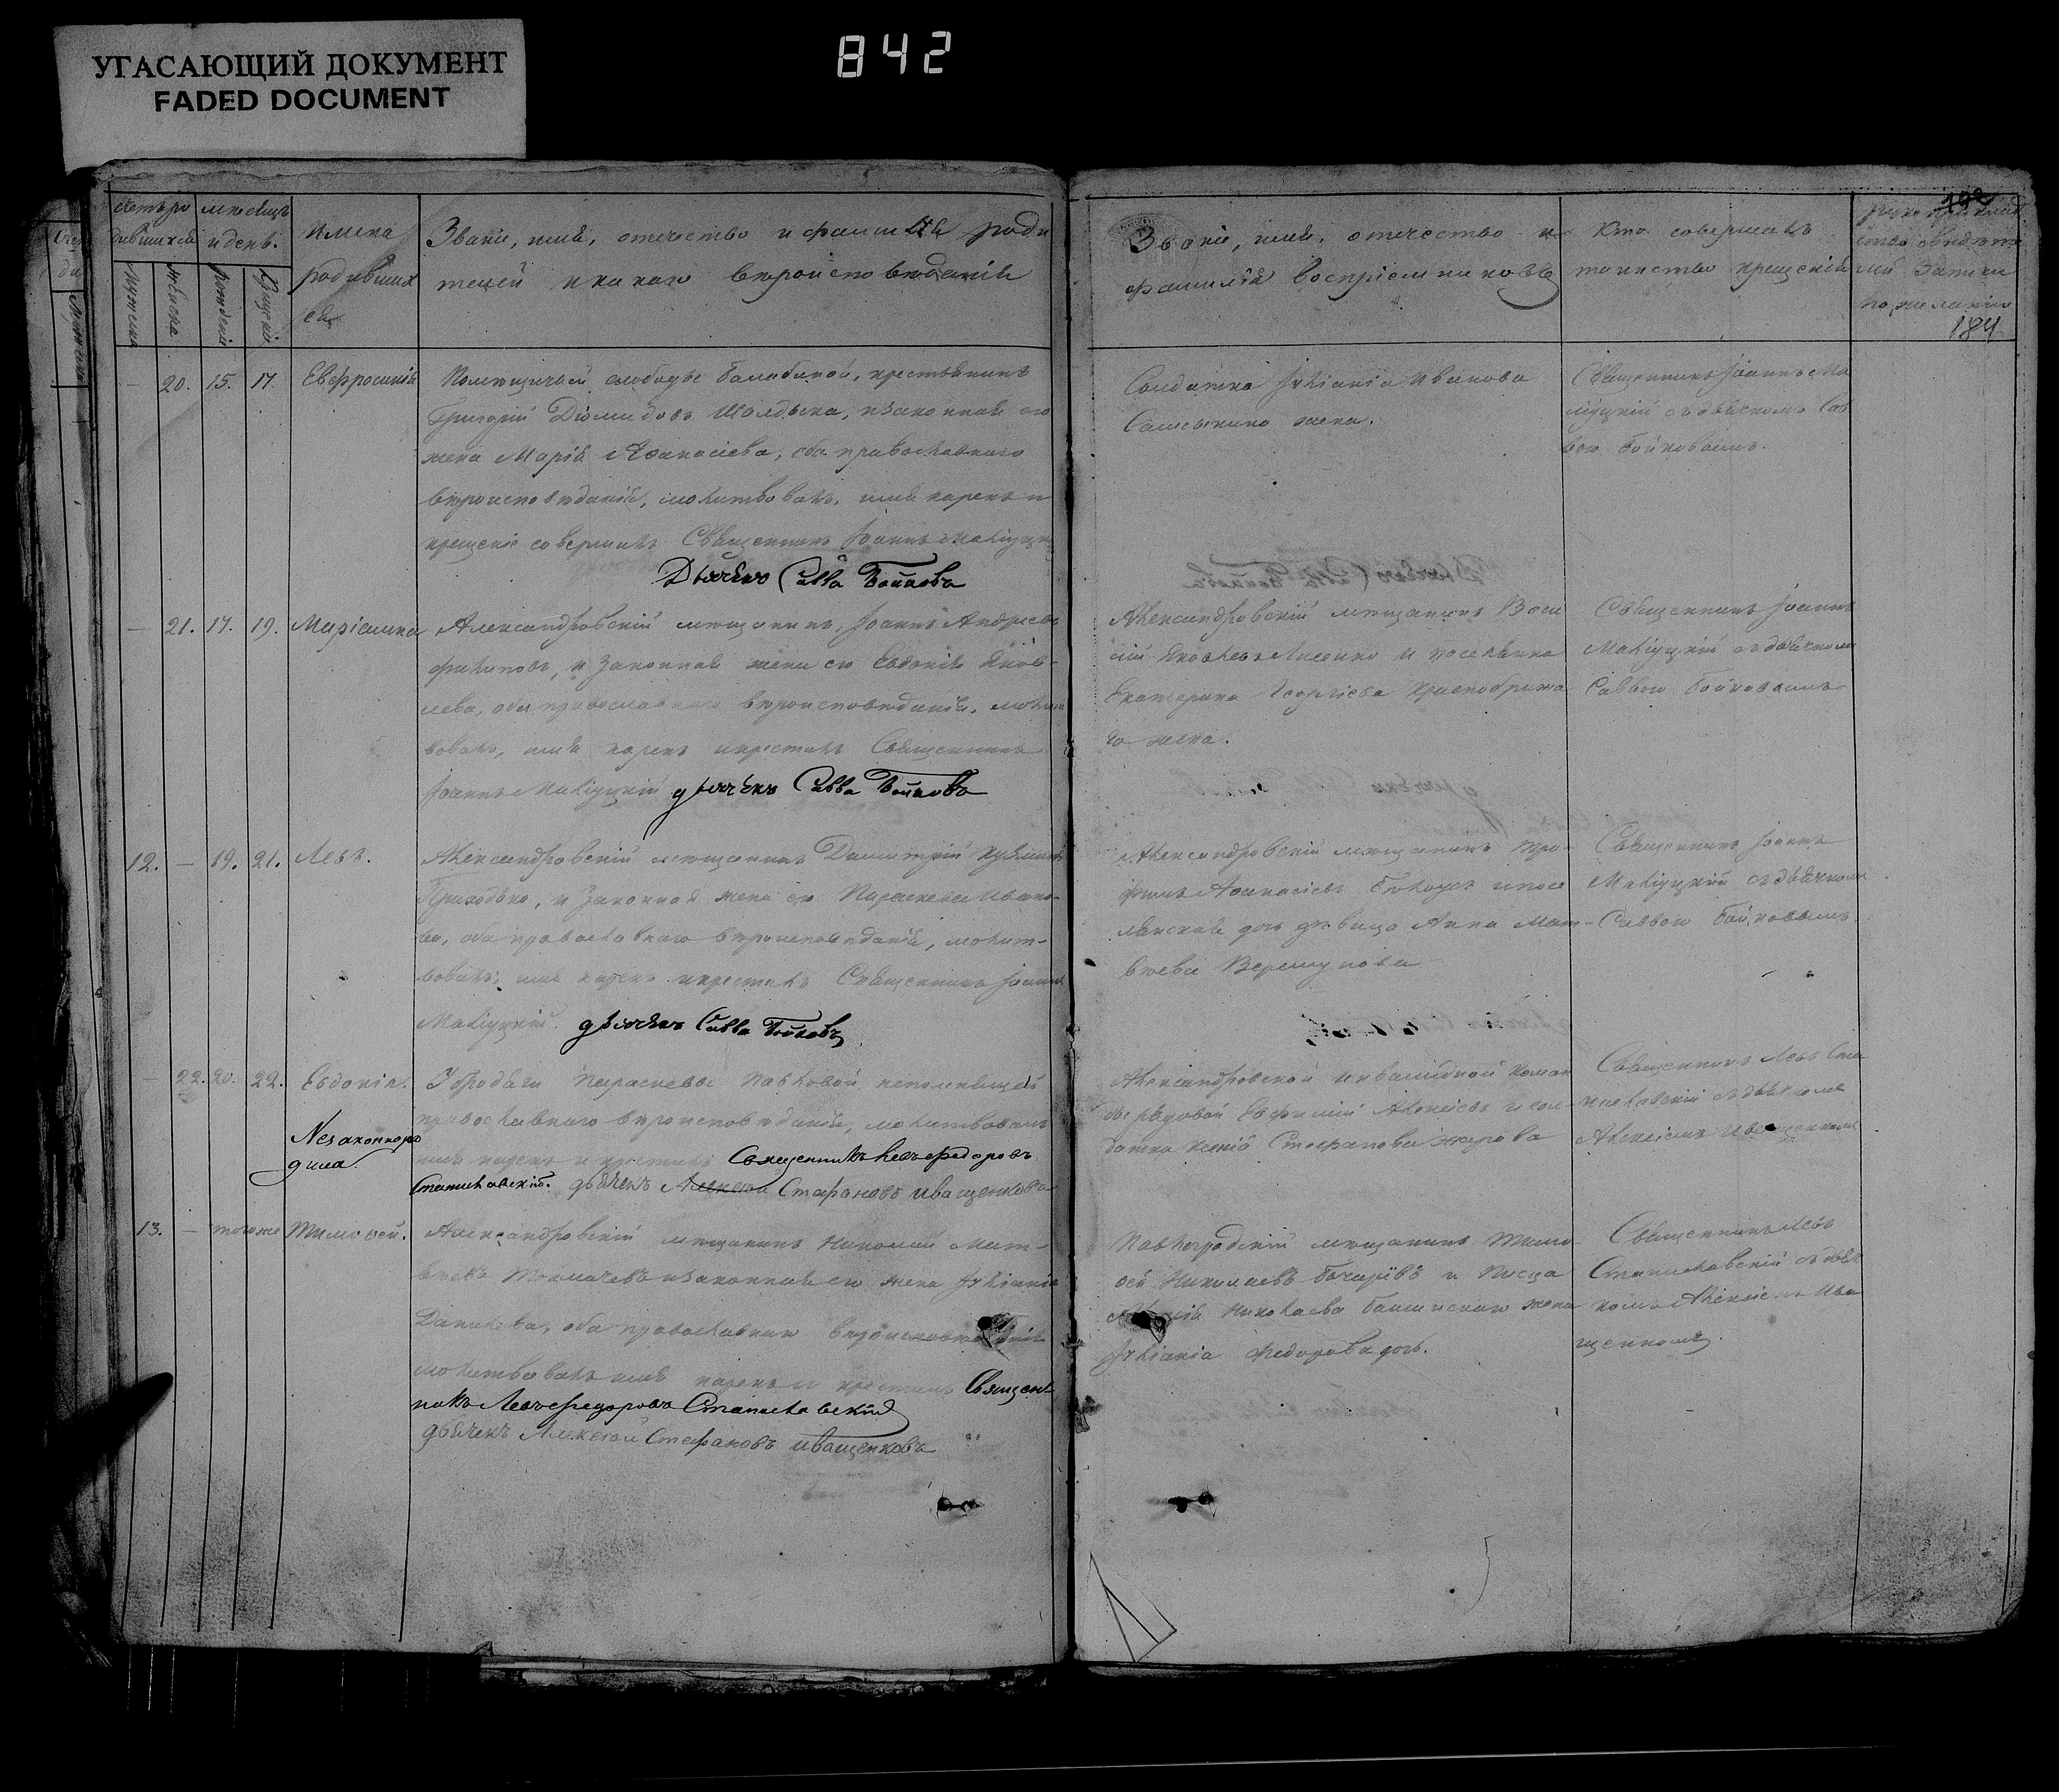 УГАСАЮЩИЙ ДОКУМЕНТ
FADED DOCUMENT
842
192
184
Счетъ ро
дившихся
Мужеска
Женска
мѣсяцъ
и день.
Рожденія
Крещенія
имена
родивших
ся
Званіе, имя, отечество и фамилія роди
телей и какаго вѣроисповѣданія
Званіе, имя, отечество и
фамилія воспріемниковъ
Кто совершалъ
таинство крещенія
рукоприклад
ство свидѣте
лей записи
по желанію
— 20. 15. 17. Евфросинія
Помѣщичьей слободы балабиной, крестьянинъ
Григорій Діомидовъ Шалдыка, и законная его
жена Марія Аѳанасіева, оба православнаго
вѣроисповѣданія, молитвовалъ, имя нарекъ и
крещеніе совершилъ Священникъ Іоаннъ Малуцкій
Дьячекъ Савва Бойковъ
Солдатка Іуліанія Иванова
жена.
Священникъ Іоаннъ Ма
луцкій съ дьячкомъ Сав
вою Бойковымъ.
— 21. 17. 19. Маріамна
Александровскій мѣщанинъ, Іоаннъ Андреевъ
Филиповъ, и законная жена его Евдокія Яков-
лева, оба православнаго вѣроисповѣданія, молит
вовалъ, имя нарекъ и крестилъ Священникъ
Іоаннъ Малуцкій дьячекъ Савва Бойковъ
Александровскій мѣщанинъ Васи
лій Яковлевъ Лисенко и поселянка
Екатерина Георгіева
го жена.
Священникъ Іоаннъ
Малуцкій съ дьячкомъ
Саввою Бойковымъ
12. — 19. 21. Левъ.
Александровскій мѣщанинъ Димитрій
Приходько, и законная жена его Параскева Ивано-
ва, оба православнаго вѣроисповѣданія, молит-
вовалъ, имя нарекъ и крестилъ Священникъ Іоаннъ
Малуцкій. дьячекъ Савва Бойковъ
Александровскій мѣщанинъ Тро-
фимъ Аѳанасіевъ и посе
лянская дочь дѣвица Анна Мат-
вѣева
Священникъ Іоаннъ
Малуцкій съ дьячкомъ
Саввою Бойковымъ
— 22. 20. 22. Евдокія.
Незаконноро
дна.
У бродяги Параскевы Павловой непомнящей
православнаго вѣроисповѣданія, молитвовалъ
имя нарекъ и крестилъ Священникъ Левъ Федоровъ
Станиславскій. дьячекъ Алексѣй Стефановъ Иващенковъ
Александровской инвалидной коман
ды рядовой Евфимій Алексѣевъ и сол-
датка Ксенія Стефанова Жирова
Священникъ Левъ Ста
ниславскій съ дьячкомъ
Алексѣемъ Иващенкомъ
13. — тогоже Тимоѳей.
Александровскій мѣщанинъ Николай Мат-
вѣевъ Толмачевъ и законная его жена Іуліанія
Данилова, оба православнаго вѣроисповѣданія
молитвовалъ имя нарекъ и крестилъ Священ
никъ Левъ Федоровъ Станиславскій
дьячекъ Алексѣй Стефановъ Иващенковъ
Павлоградскій мѣщанинъ Тимо-
ѳей Николаевъ Бочаровъ и
Николаева жена
Іуліанія Федорова дочь.
Священникъ Левъ
Станиславскій съ дьяч
комъ Алексѣемъ Ива
щенкомъ.